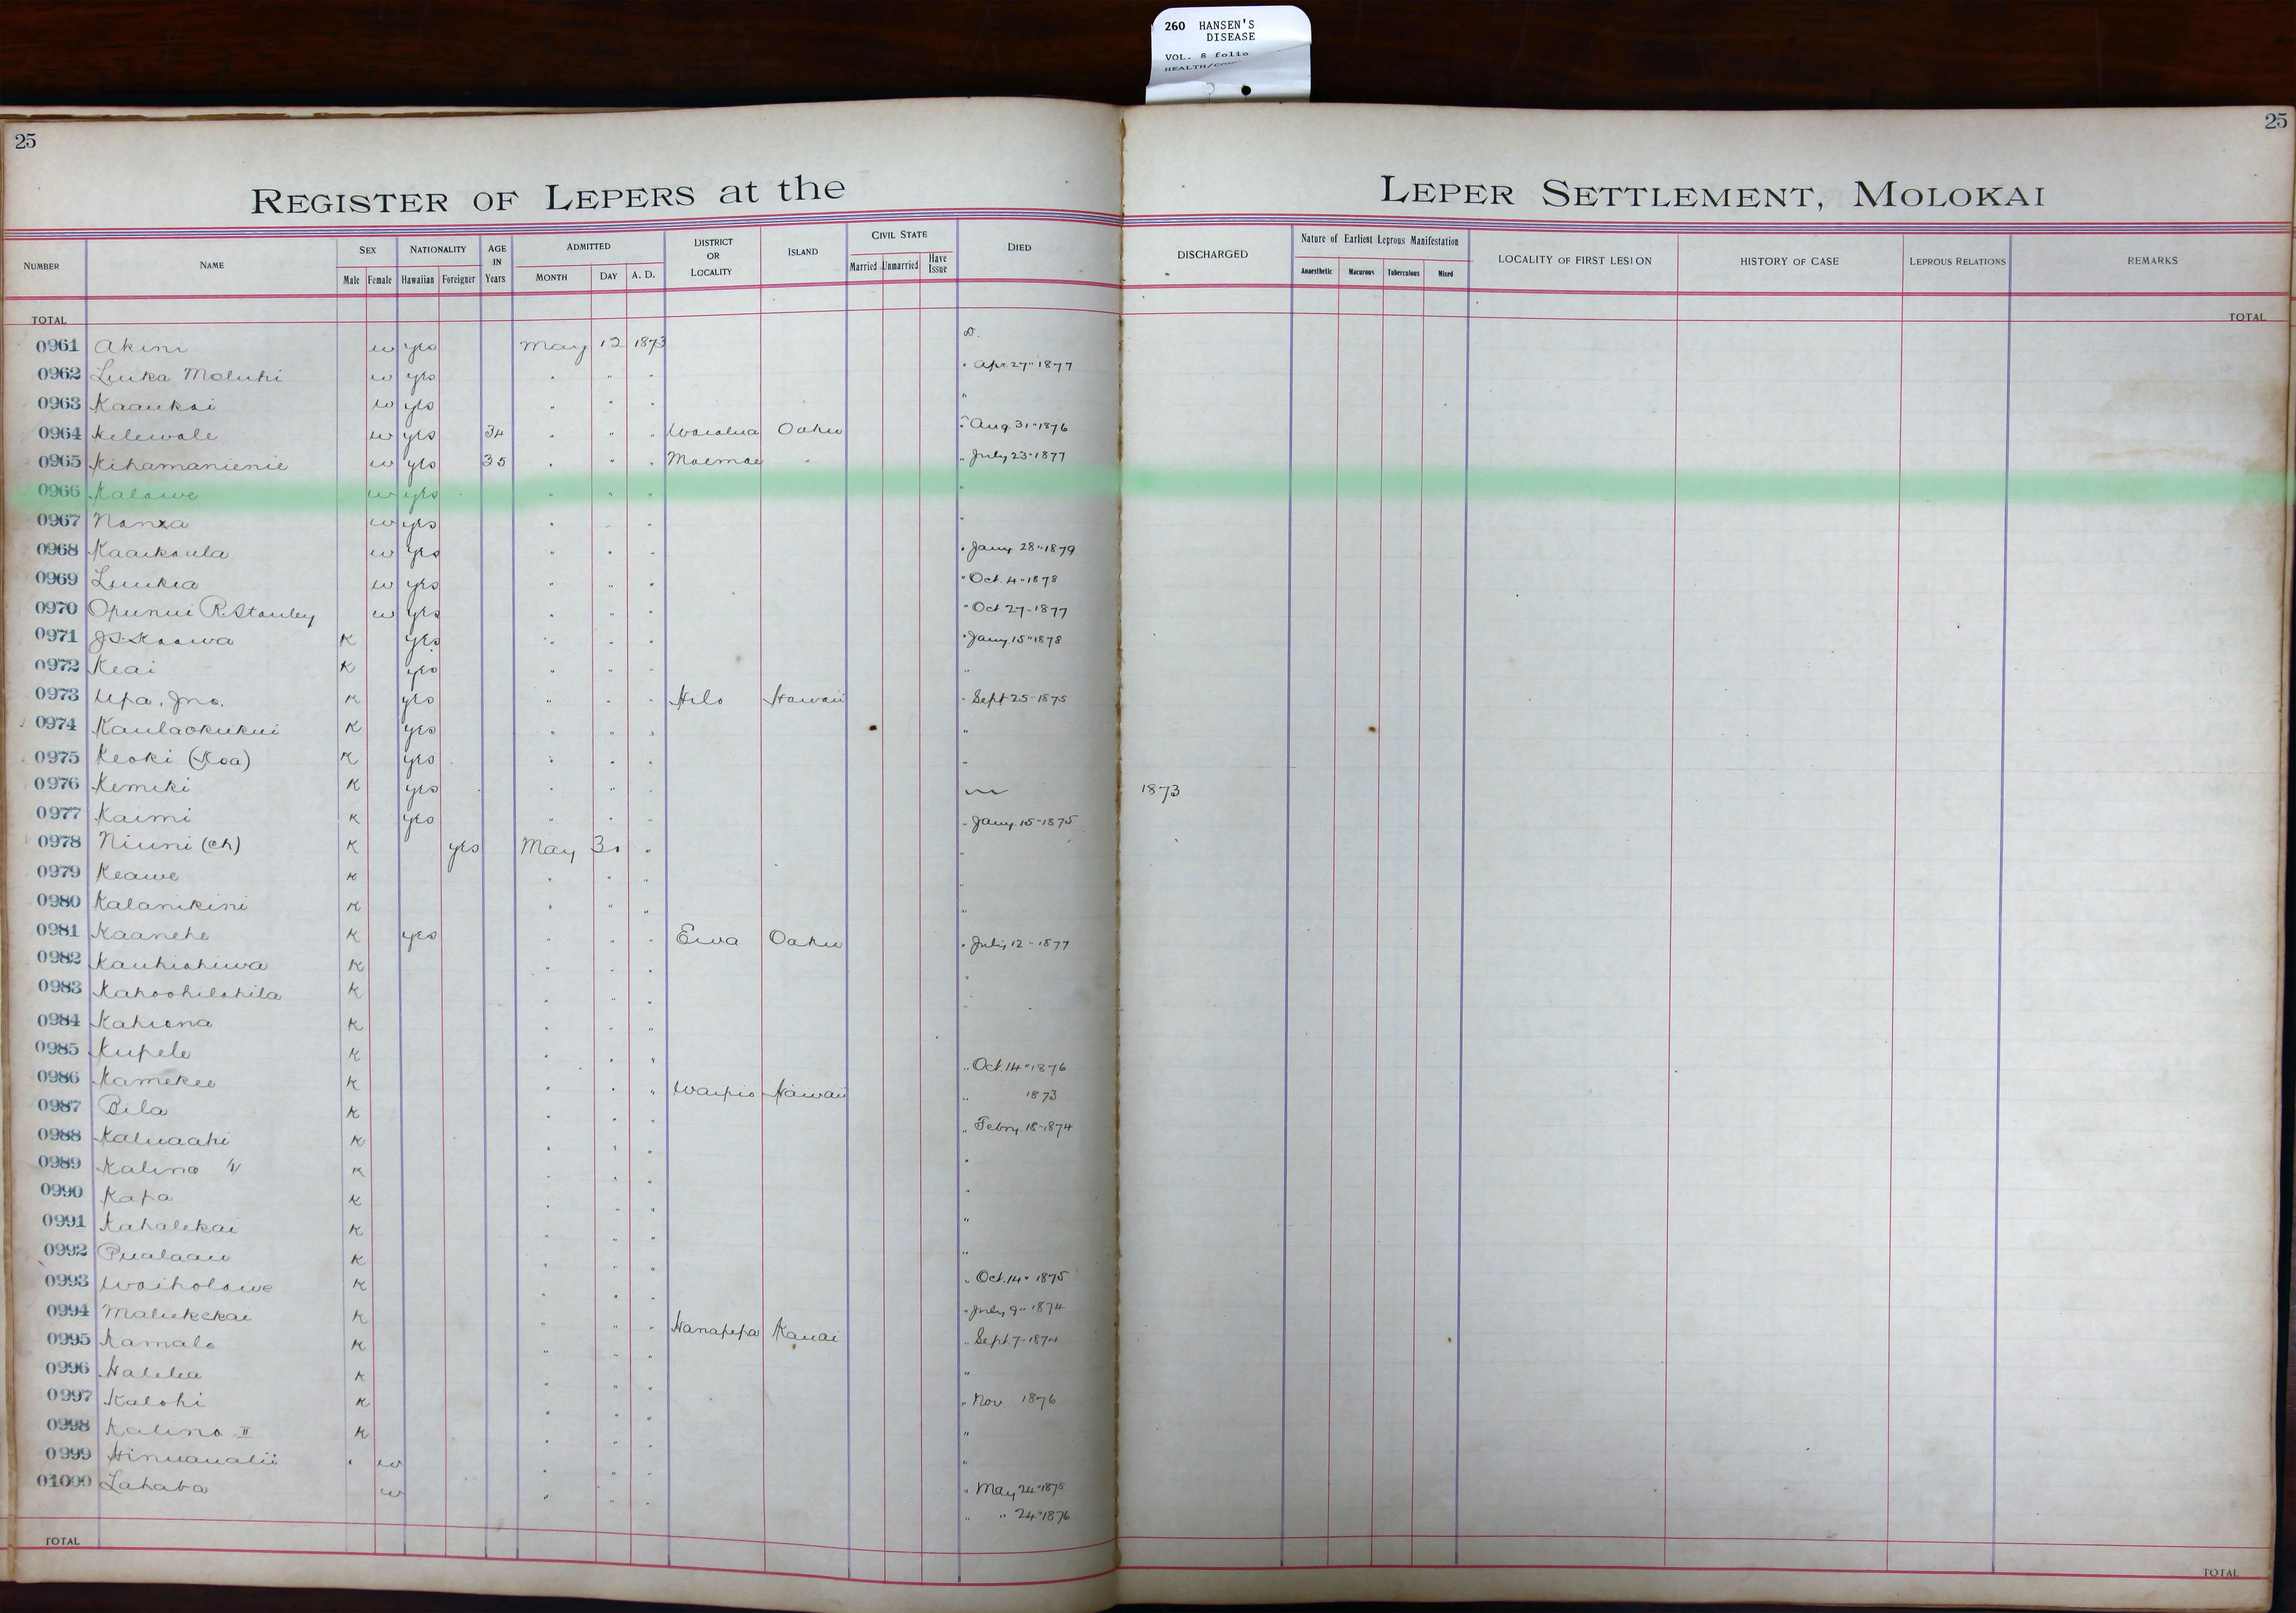 260 HANSEN'S
DISEASE
VOL. 8 folio
25
25
REGISTER OF LEPERS at the LEPER SETTLEMENT, MOLOKAI
NUMBER NAME SEX Male Female NATIONALITY Hawaiian Foreigner AGE IN Years ADMITTED MONTH DAY A. D. DISTRICT OR LOCALITY ISLAND CIVIL STATE Married Unmarried Have Issue DIED DISCHARGED Nature of Earliest Leprous Manifestation Anaesthetic Macurous Tuberculous Mixed LOCALITY OF FIRST LESION HISTORY OF CASE LEPROUS RELATIONS REMARKS
TOTAL TOTAL
0961 Akini w yes May 12 1873 D.
0962 Luika Moluhi w yes " " " " Apr. 27" 1877
0963 Kaaukai w yes " " " "
0964 Kelewale w yes 34 " " " Waialua Oahu " Aug. 31" 1876
0965 Kihamanienie w yes 35 " " " " July 23" 1877
0966 Kalawe w yes " " " "
0967 w yes " " " "
0968 Kaaikaula w yes " " " " Jany. 28" 1879
0969 Luukia w yes " " " " Oct. 4" 1878
0970 Opunui R. Stanley w yes " " " " Oct 27" 1877
0971 J.S. Kaawa K yes " " " " Jany. 15" 1878
0972 Keai K yes " " " "
0973 Upa. Jno. K yes " " " Hilo Hawaii " Sept 25" 1875
0974 Kaulaokukui K yes " " " "
0975 Keoki (Koa) K yes " " " "
0976 Kemiki K yes " " " 1873
0977 Kaimi K yes " " " " Jany. 15" 1875
0978 Niuni (ch) K yes May 30 " "
0979 Keawe K " " " "
0980 Kalanikini K " " " "
0981 Kaanehe K yes " " " Ewa Oahu " July 12" 1877
0982 Kauhiahiwa K " " " "
0983 Kahoohilahila K " " " "
0984 Kahiona K " " "
0985 Kupele K " " " " Oct. 14" 1876
0986 Kamekee K " " " Waipio Hawaii " 1873
0987 Bila K " " " " Febry. 18" 1874
0988 Kaluaahi K " " " "
0989 Kalino K " " " "
0990 Kapa K " " " "
0991 Kahalekai K " " " "
0992 Pualaau K " " " " Oct. 14" 1875
0993 Waiholawe K " " " " July 9" 1874
0994 Maliekekai K " " " Hanapepa Kauai " Sept. 7" 1874
0995 Kamalo K " " " "
0996 Halelea K " " " " Nov. 1876
0997 Kalohi K " " " "
0998 Kalino II K " " " "
0999 Hinuaualii w " " " " May 24" 1875
01000 Lahaba w " " " " " 24" 1876
TOTAL TOTAL